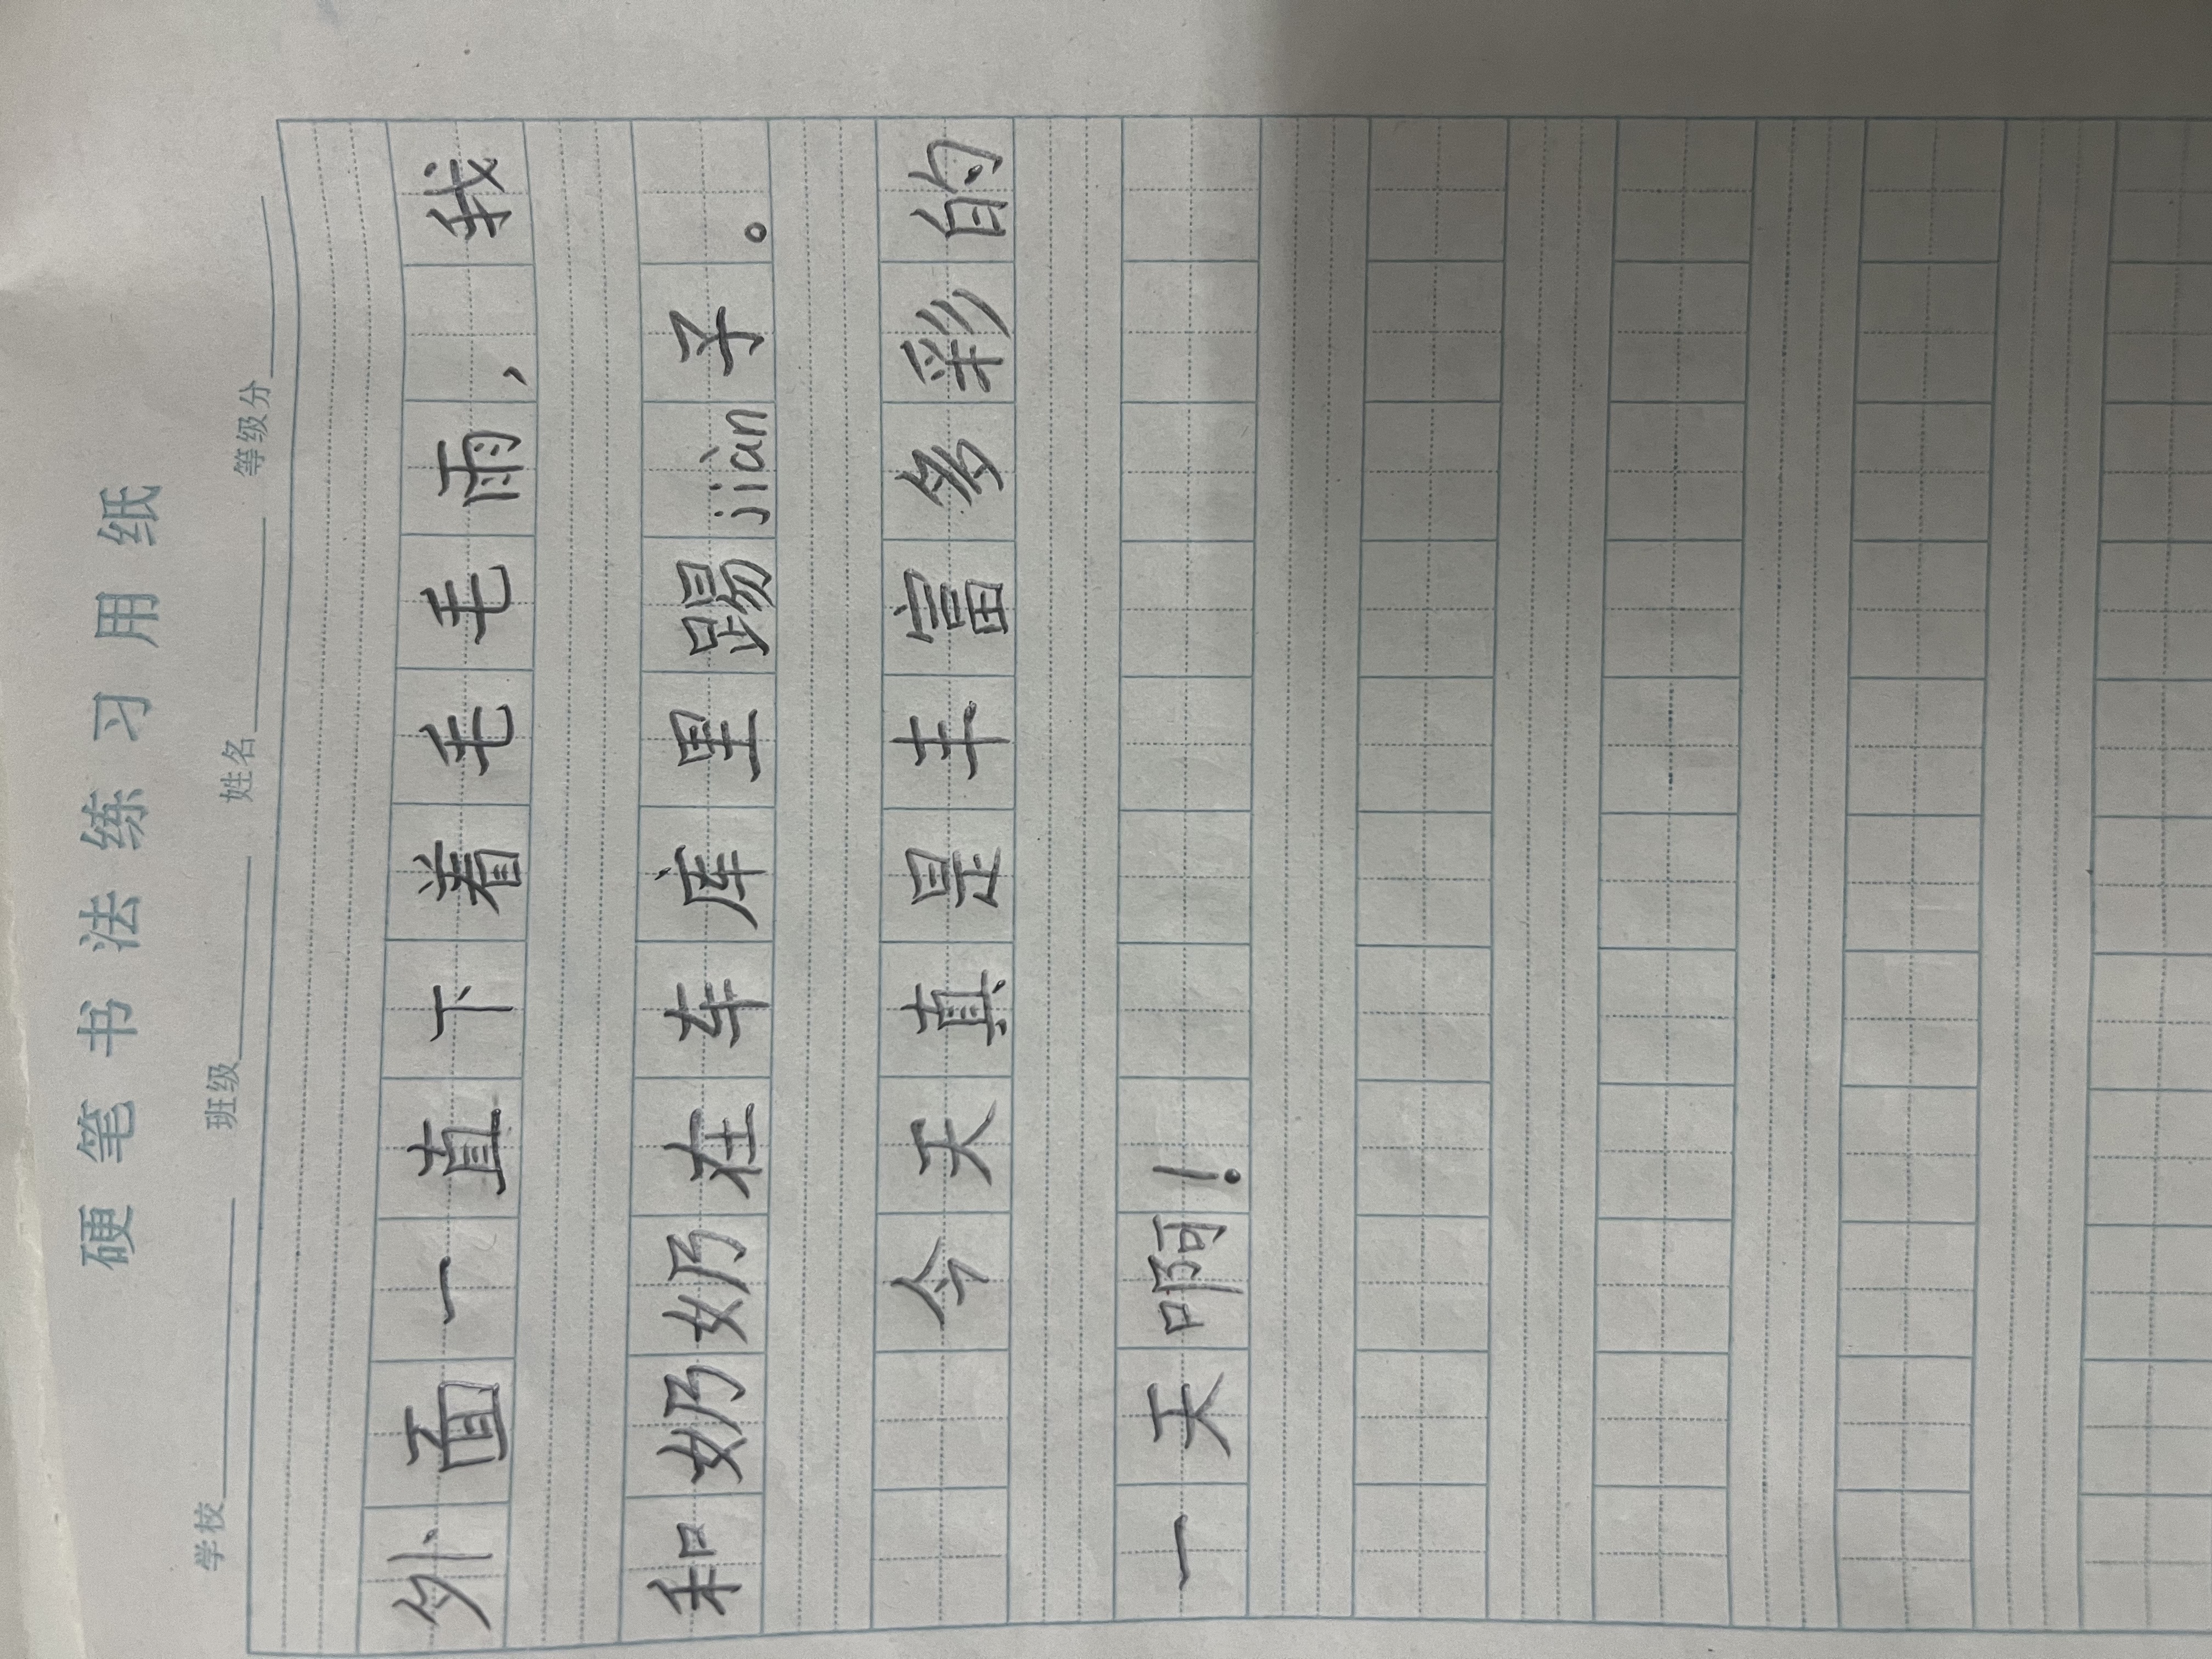 硬笔书法练习用纸
学校 班级 姓名 等级分
外面一直下着毛毛雨，我
和奶奶在车库里踢jiàn子。
今天真是丰富多彩的
一天啊！